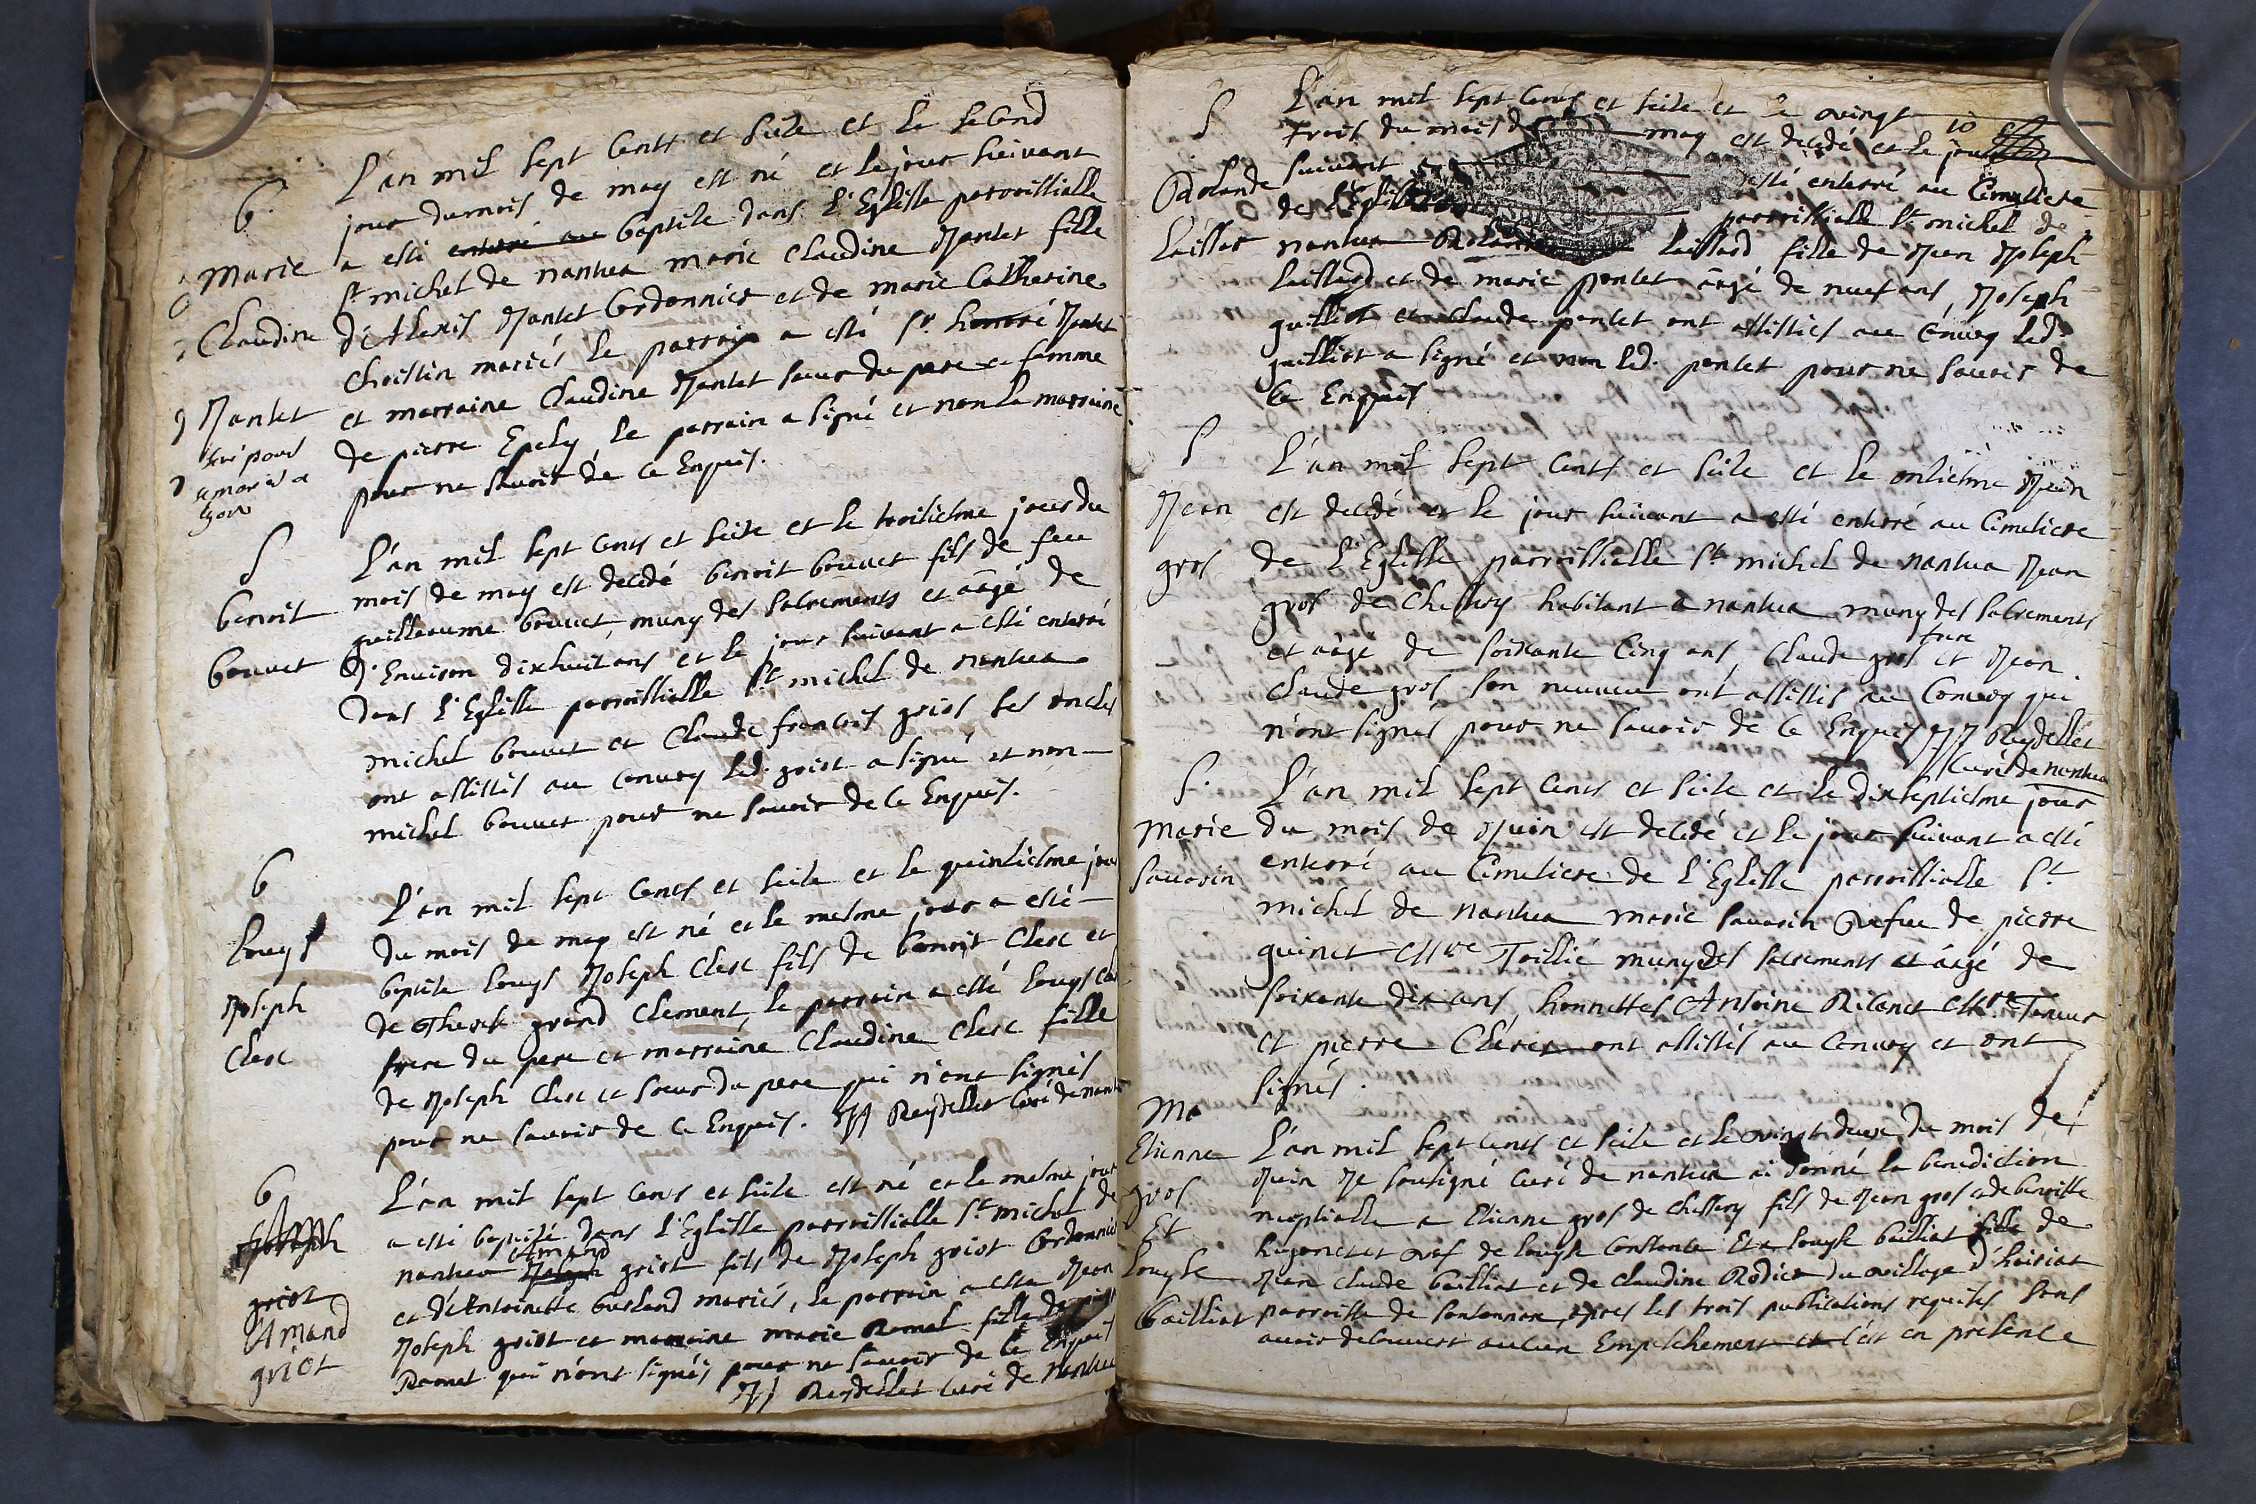 L'an mil sept cents et seile et le second
b. jour dumois de may est né et le jour suivant
Marie a esté enterré au baptile dans l'Eglisse parroissialle
St michel de nantua marie Claudine Jantet fille
Claudine d'Alexis Jantet Cordonnier et de marie Catherine
Christin mariés le parrain a esté Sr honoré Jantet
Jantet et marraine Claudine Jantet saeur du pere et femme
de pierre Epely le parrain a signé et non la marraine
pour ne savoir de ce Enquis.
S L'an mil sept cents et seile et le troisiesme jour du
benoit mois de may est decedé benoit bouvet fils de feu
guilleaume bouvet muny des sacrements et aâgé de
bouvet d'Environ dixhuit ans et le jour suivant a esté enterré
dans l'Eglisse parroissialle St michel de nantua
michel bouvet et Claude francois griot ses oncles
ont assistés au convoy led. griot a signé et non
michel bouvet pour ne savoir de ce Enquis.
b L'an mil sept cents et seile et le quinsiesme jour
Louys du mois de may est né et le mesme jour a esté
Joseph baptile louys Joseph Clerc fils de benoit Clerc et
Clerc de Therese grand Clement, le parrain a esté louys
frere du pere et marraine Claudine Clerc fille
de Joseph Clerc et soeur du pere qui n'ont signés
pour ne savoir de ce Enquis. JJ Reydellet Curé de nantua
b L'an mil sept cents et seile est né et le mesme jour
Joseph a esté baptisé dans l'Eglisse parroissialle St michel de
nantua Joseph Amand griot fils de Joseph griot Cordonnier
griot et d'Antoinette burland mariés, le parrain a esté Jean
Amand Joseph griot et marraine marie Ramel fille de
griot Ramel qui n'ont signés pour ne savoir de ce Enquis
JJ Reydellet Curé de Nantua
10
S L'an mil sept Cents et seile et le vingt
trois du mois de may est decedé et le jour
Rolande suivant a esté enterré au Cimetiere
de l'Eglisse parroissialle St michel de
Laissar nantua Rolande laissard fille de Jean Joseph
laissard et de marie pontet aâgé de neuf ans, Joseph
guilliot et Claude pontet ont assistés au Convoy led.
guilliot a signé et non led. pontet pour ne savoir de
ce Enquis
S L'an mil sept cents et seile et le onsiesme Juin
Jean est decedé et le jour suivant a esté enterré au Cimetiere
gros de l'Eglisse parroissialle St michel de nantua Jean
gros de Chessery habitant a nantua muny des sacrements
et aâgé de soixante Cinq ans, Claude gros frere et Jean
Claude gros son neuveu ont assistés au Convoy qui
n'ont signés pour ne savoir de ce Enquis JJ Reydellet
Curé de nantua
S. L'an mil sept cents et seile et le dixseptiesme jour
Marie du mois de Juin est decedé et le jour suivant a esté
Savarin enterré au Cimetiere de l'Eglisse parroissialle St
michel de nantua marie savarin vefue de pierre
guinet muny des sacrements et aâgé de
soixante dix ans, honnettes Antoine
et pierre Clerc ont assistés au Convoy et ont
signés.
Ma
Etienne L'an mil sept cents et seile et le vingt deux du mois de
gros Juin Je sousigné Curé de nantua ai donné la benediction
Et nuptialle a Etienne gros de Chessery fils de Jean gros et de benoitte
Louyse hugonet et vef de louyse Constantin Et a louyse bailliat fille de
Jean Claude bailliat et de Claudine Rodier du village d'heiriat
bailliat parroisse de sontonnax, apres les trois publications requises sans
avoir decouvert aulcun Empeschement et c'ést en présence